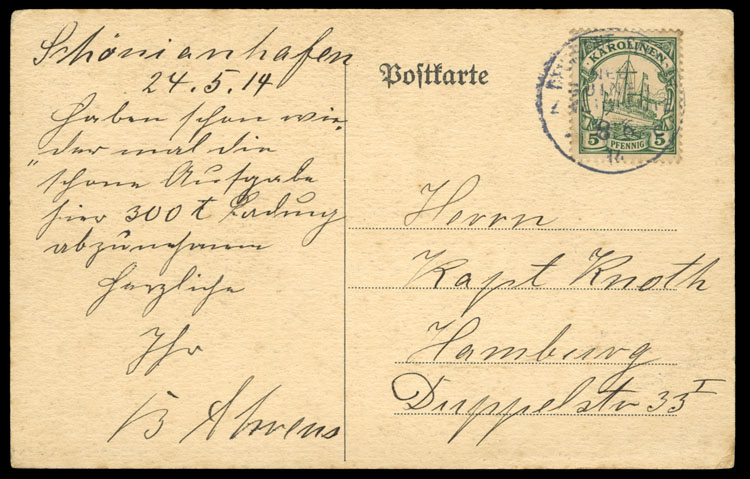 Schönianhafen
24.5.14
haben schon wie-
der mal die
"schöne Aufgabe
hier 300 t Ladung
abzunehmen
Herzliche
Ihr
B Ahrens
Postkarte
KAROLINEN
5 PFENNIG 5
8 6
14
Herrn
Kapt Knoth
Hamburg
Düppelstr 33 I